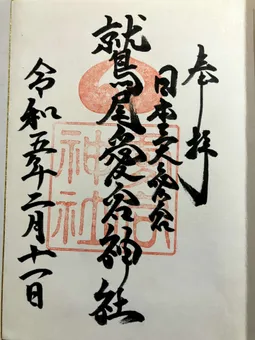 奉拝
日本三大愛宕
鷲尾愛宕神社
愛宕
神社
令和五年二月十一日